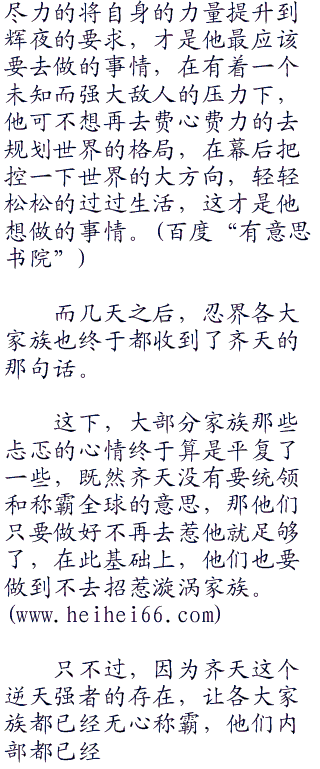 尽力的将自身的力量提升到
辉夜的要求，才是他最应该
要去做的事情，在有着一个
未知而强大敌人的压力下，
他可不想再去费心费力的去
规划世界的格局，在幕后把
控一下世界的大方向，轻轻
松松的过过生活，这才是他
想做的事情。(百度“有意思
书院”)
而几天之后，忍界各大
家族也终于都收到了齐天的
那句话。
这下，大部分家族那些
忐忑的心情终于算是平复了
一些，既然齐天没有要统领
和称霸全球的意思，那他们
只要做好不再去惹他就足够
了，在此基础上，他们也要
做到不去招惹漩涡家族。
(www.heihei66.com)
只不过，因为齐天这个
逆天强者的存在，让各大家
族都已经无心称霸，他们内
部都已经